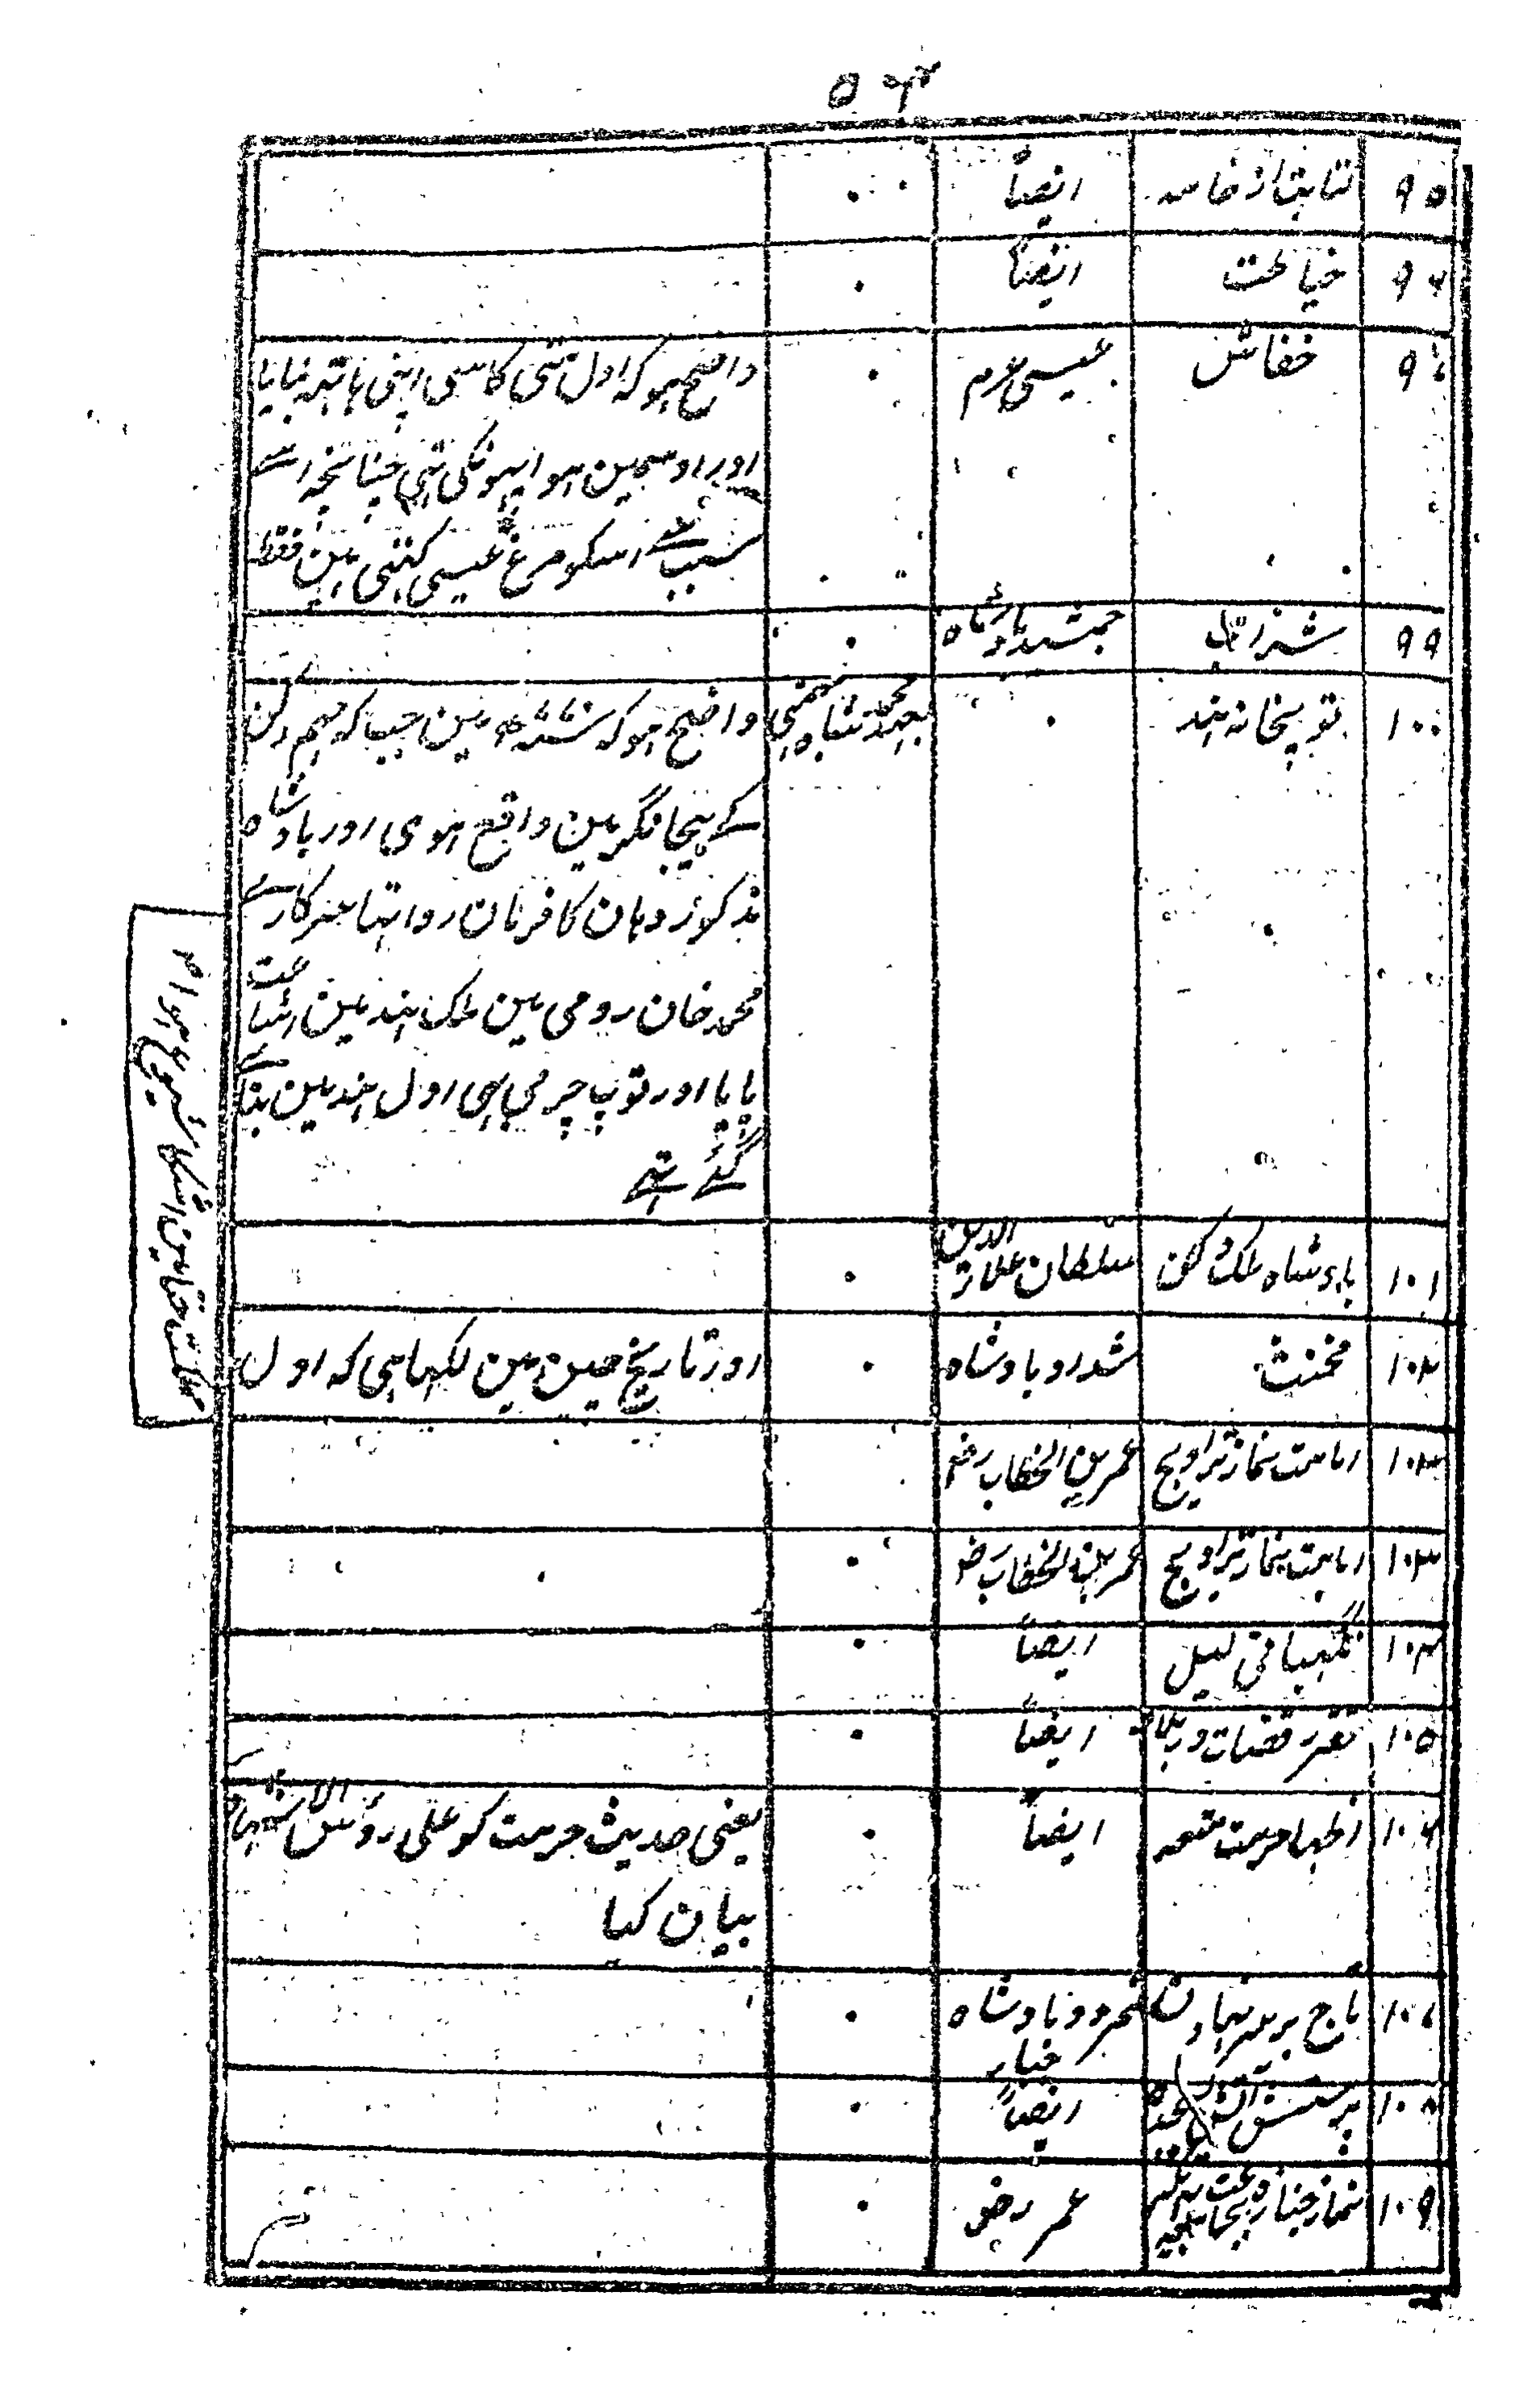 ۵۴
۹۵ کتابت از خامہ ایضاً ۰
۹۶ خیاطت ایضاً ۰
۹۷ خفاش عیسی مریم ۰ واضح ہوکہ اول مٹی کا سی اپنی ہاتہہ بنایا
اور اوسمین ہوا پہونکی تہی چنانچہ اسے
سبب سے اسکو مرغ عیسی کہتی ہین فقط
۹۹ شراب جمشید بادشاہ ۰
۱۰۰ توپخانہ ہند ۰ بعہد محمد شاہ بہمنی واضح ہوکہ مین جبکہ مہم دکن
کے بیجانگر مین واقع ہوی اور بادشاہ
مذکور وہان کا فرمان روا تہا
محمد خان رومی مین ملک ہند مین اشاعت
پایا اور توپ چرمی بہی اول ہند مین بنائے
گئے تہے
۱۰۱ بادشاہ ملک دکن سلطان علاؤ الدین ۰
۱۰۲ مخنث شدرو بادشاہ ۰ اور تاریخ چین مین لکہا ہی کہ اول
۱۰۳ امامت نماز تراویح عمر بن الخطاب رضہ
۱۰۳ امامت نماز تراویح عمر بن الخطاب رضہ ۰
۱۰۴ نگہبانی لیل ایضاً ۰
۱۰۵ تقرر قضات و بلاد ایضاً ۰
۱۰۶ اظہار حرمت متعہ ایضاً ۰ یعنی حدیث حرمت کو علی رؤس الاشہاد
بیان کیا
۱۰۷ تاج بر سر نہادن نمرود بادشاہ جبار ۰
۱۰۸ پرستش آتش ایضاً ۰
۱۰۹ نماز جنازہ عمر رضہ ۰